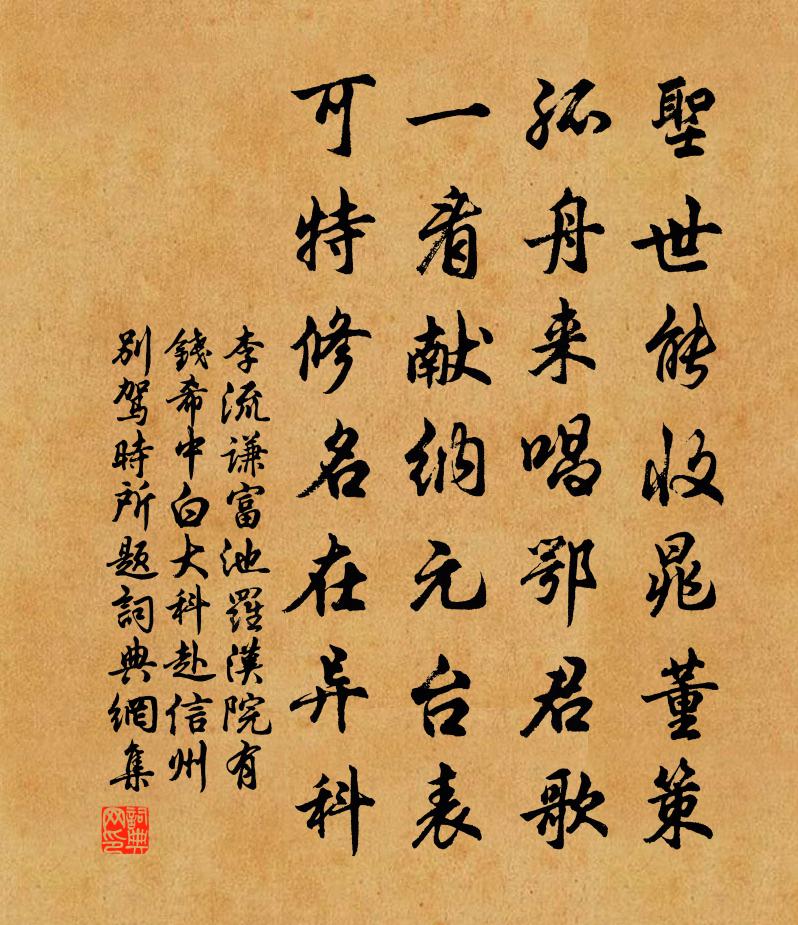 聖世能收晁董策
孤舟来唱鄂君歌
一看献纳元台表
可特修名在异科
李流谦富池羅漢院有
錢希中白大科赴信州
别駕時所题詞典網集
詞典网印